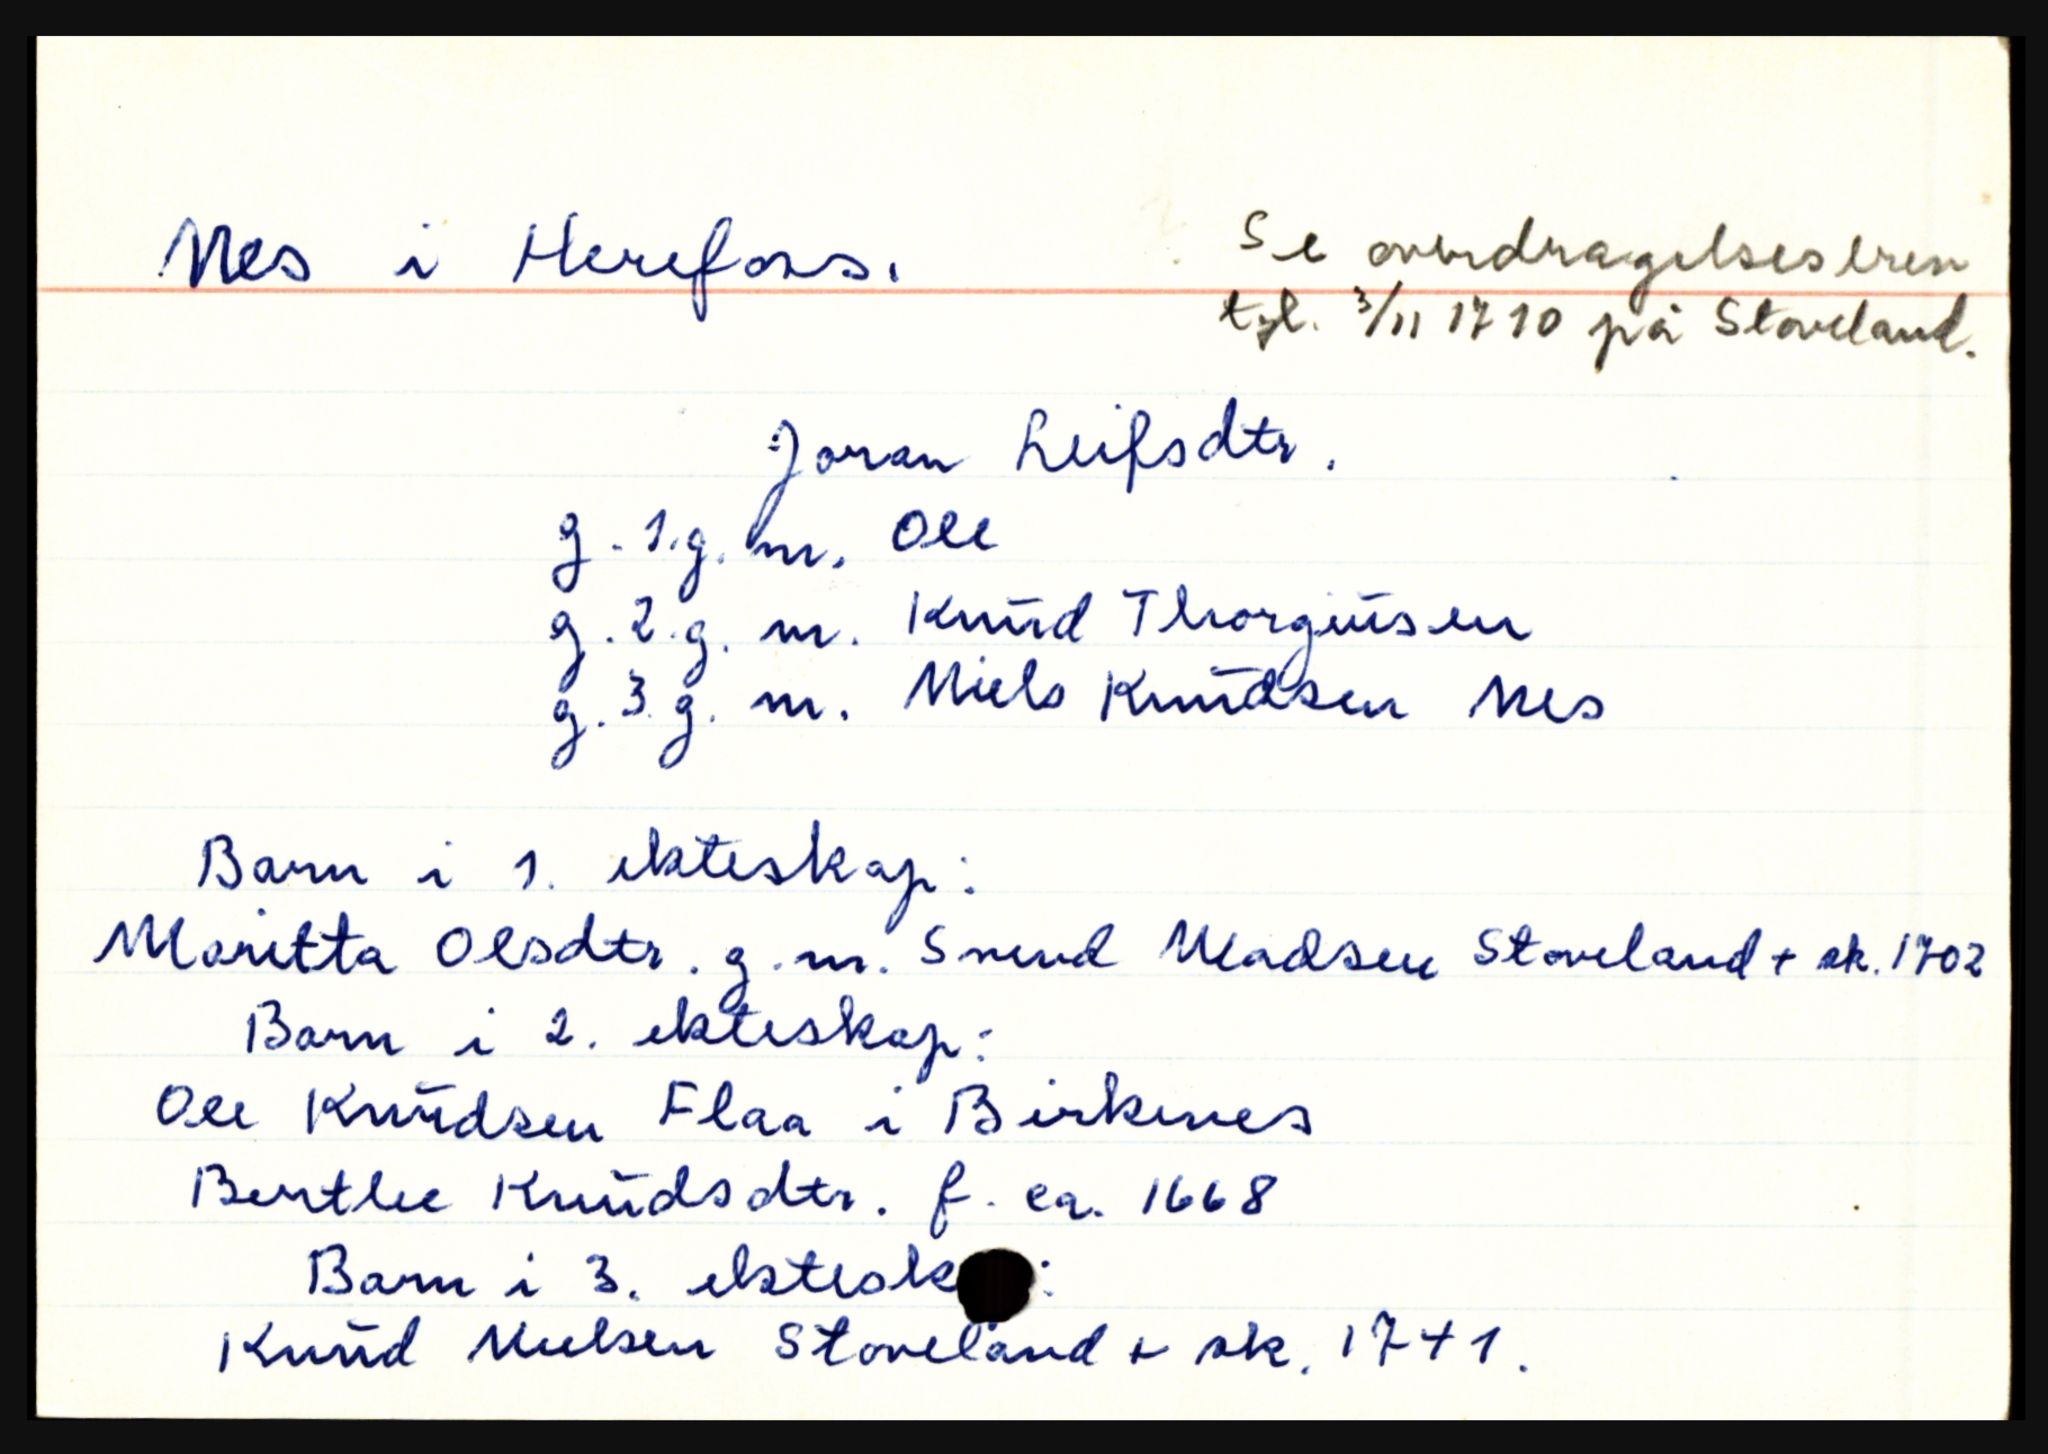 Nes i Herefoss.
Se overdragelsesbrev
tgl. 3/11 1710 på Stoveland.
Joran Leifsdtr.
g. 1. g. m. Ole
g. 2. g. m. Knud Thorgiusen
g. 3. g. m. Niels Knudsen Nes
Barn i 1. ekteskap:
Maritta Olsdtr. g. m. Svend Madsen Stoveland + sk. 1702
Barn i 2. ekteskap:
Ole Knudsen Flaa i Birkenes
Berthe Knudsdtr. f. ca. 1668
Barn i 3. ektesk :
Knud Nielsen Stoveland + sk. 1741.